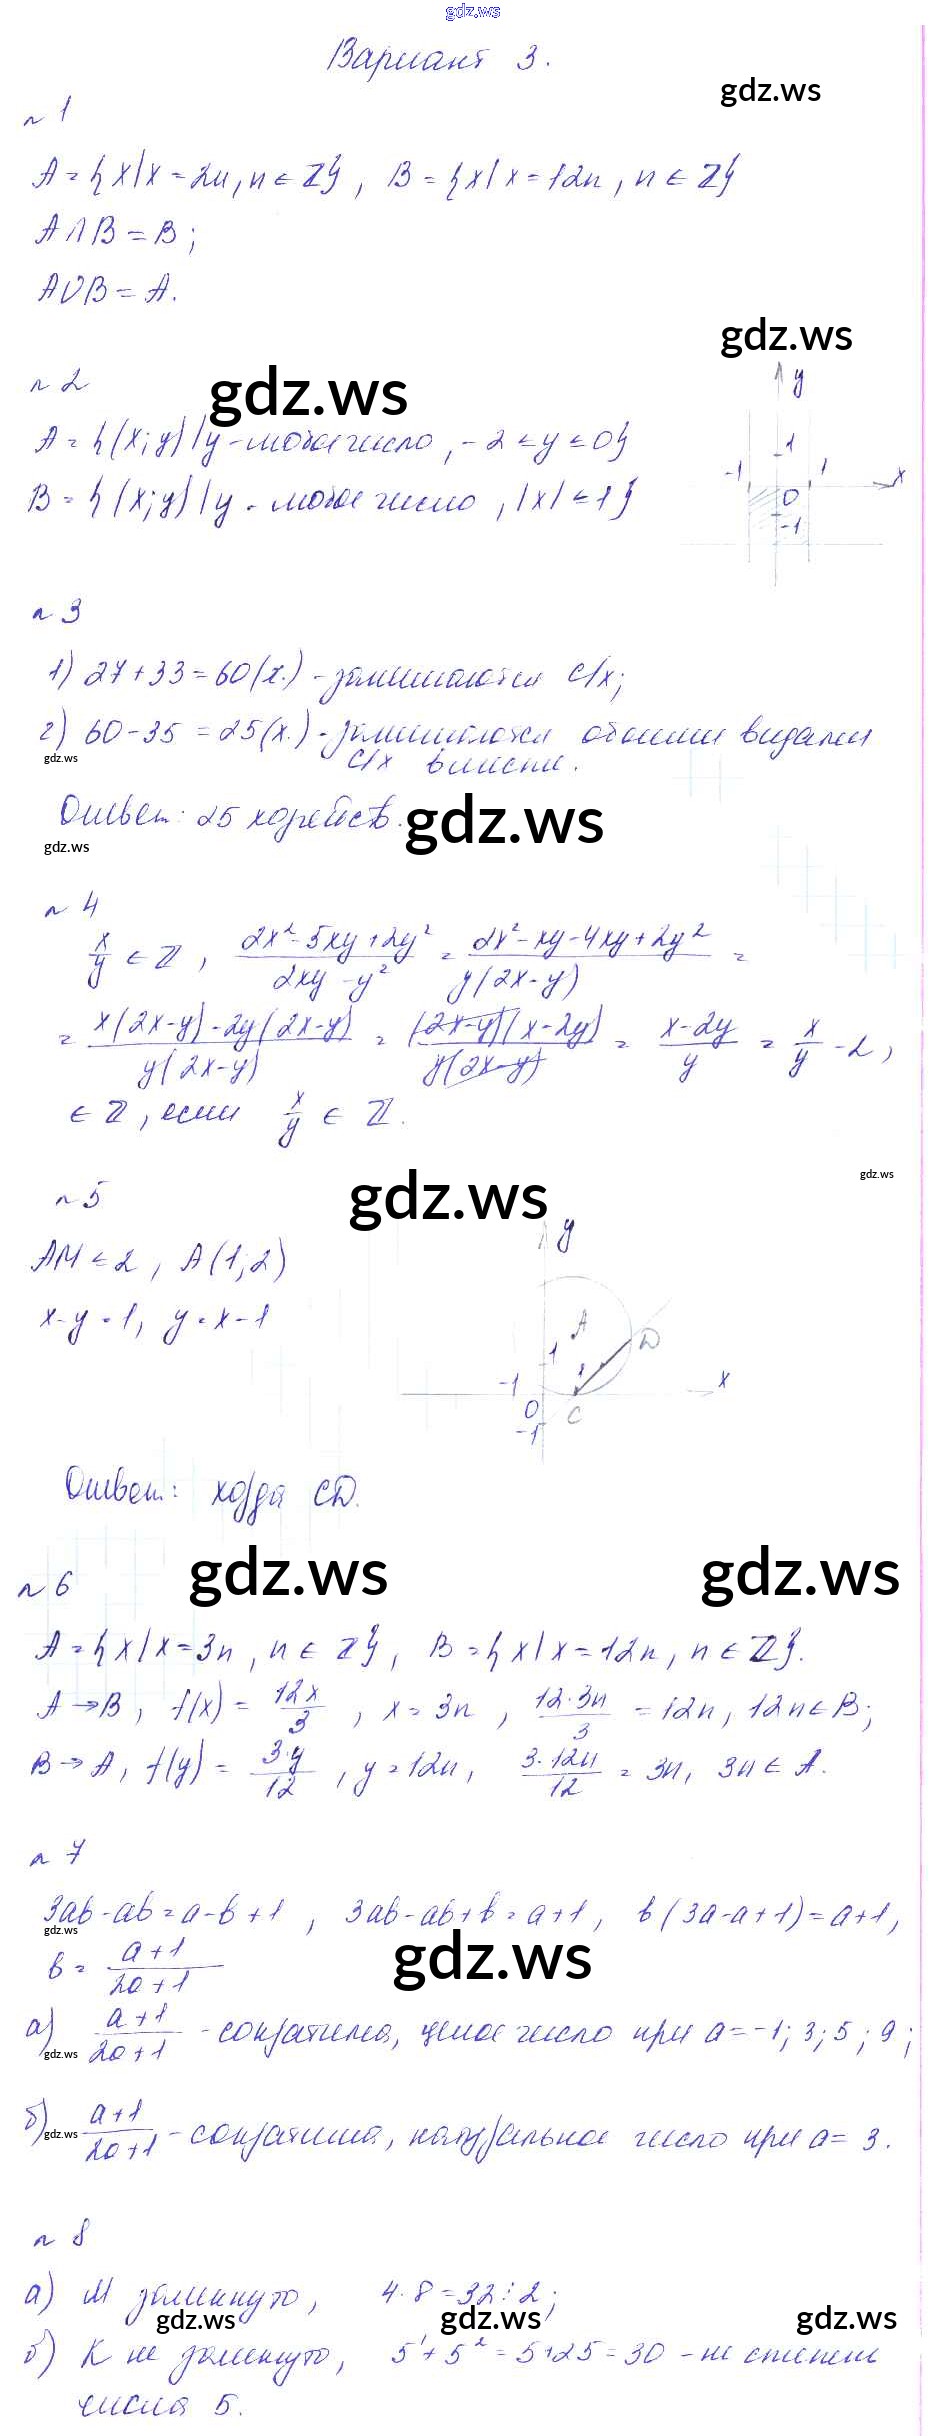 gdz.ws
Вариант 3.
gdz.ws
n 1
A = {x/x = 2n, n ∈ Z}, B = {x/x = 12n, n ∈ Z}
A∩B = B;
A∪B = A.
gdz.ws
n 2
gdz.ws
A = {(x;y)/y - любое число, -2 ≤ y ≤ 0}
B = {(x;y)/y - любое число, |x| ≤ 1}
y
1
-1
1
x
0
-1
n 3
1) 27 + 33 = 60(х.) - занимаются с/х;
2) 60 - 35 = 25(х.) - занимаются обоими видами
gdz.ws
с/х вместе.
Ответ: 25 хозяйств.
gdz.ws
gdz.ws
n 4
x/y ∈ Z, (2x² - 5xy + 2y²)/(2xy - y²) = (2x² - xy - 4xy + 2y²)/(y(2x - y)) =
= (x(2x-y) - 2y(2x-y))/(y(2x-y)) = ((2x-y)(x-2y))/(y(2x-y)) = (x-2y)/y = x/y - 2,
∈ Z, если x/y ∈ Z.
gdz.ws
n 5
gdz.ws
AM ≤ 2, A(1;2)
x - y = 1, y = x - 1
y
A
1
D
-1
1
x
0
C
-1
Ответ: хорда CD.
gdz.ws
gdz.ws
n 6
A = {x/x = 3n, n ∈ Z}, B = {x/x = 12n, n ∈ Z}.
A → B, f(x) = 12x/3, x = 3n, 12·3n/3 = 12n, 12n ∈ B;
B → A, f(y) = 3·y/12, y = 12n, 3·12n/12 = 3n, 3n ∈ A.
n 7
3ab - ab = a - b + 1, 3ab - ab + b = a + 1, b(3a - a + 1) = a + 1,
gdz.ws
b = (a + 1)/(2a + 1)
gdz.ws
а) (a + 1)/(2a + 1) - сократима, целое число при a = -1; 3; 5; 9;
gdz.ws
б) (a + 1)/(2a + 1) - сократима, натуральное число при a = 3.
gdz.ws
n 8
а) M замкнуто, 4·8 = 32 ⋮ 2;
gdz.ws
gdz.ws
gdz.ws
б) K не замкнуто, 5¹ + 5² = 5 + 25 = 30 - не степень
числа 5.